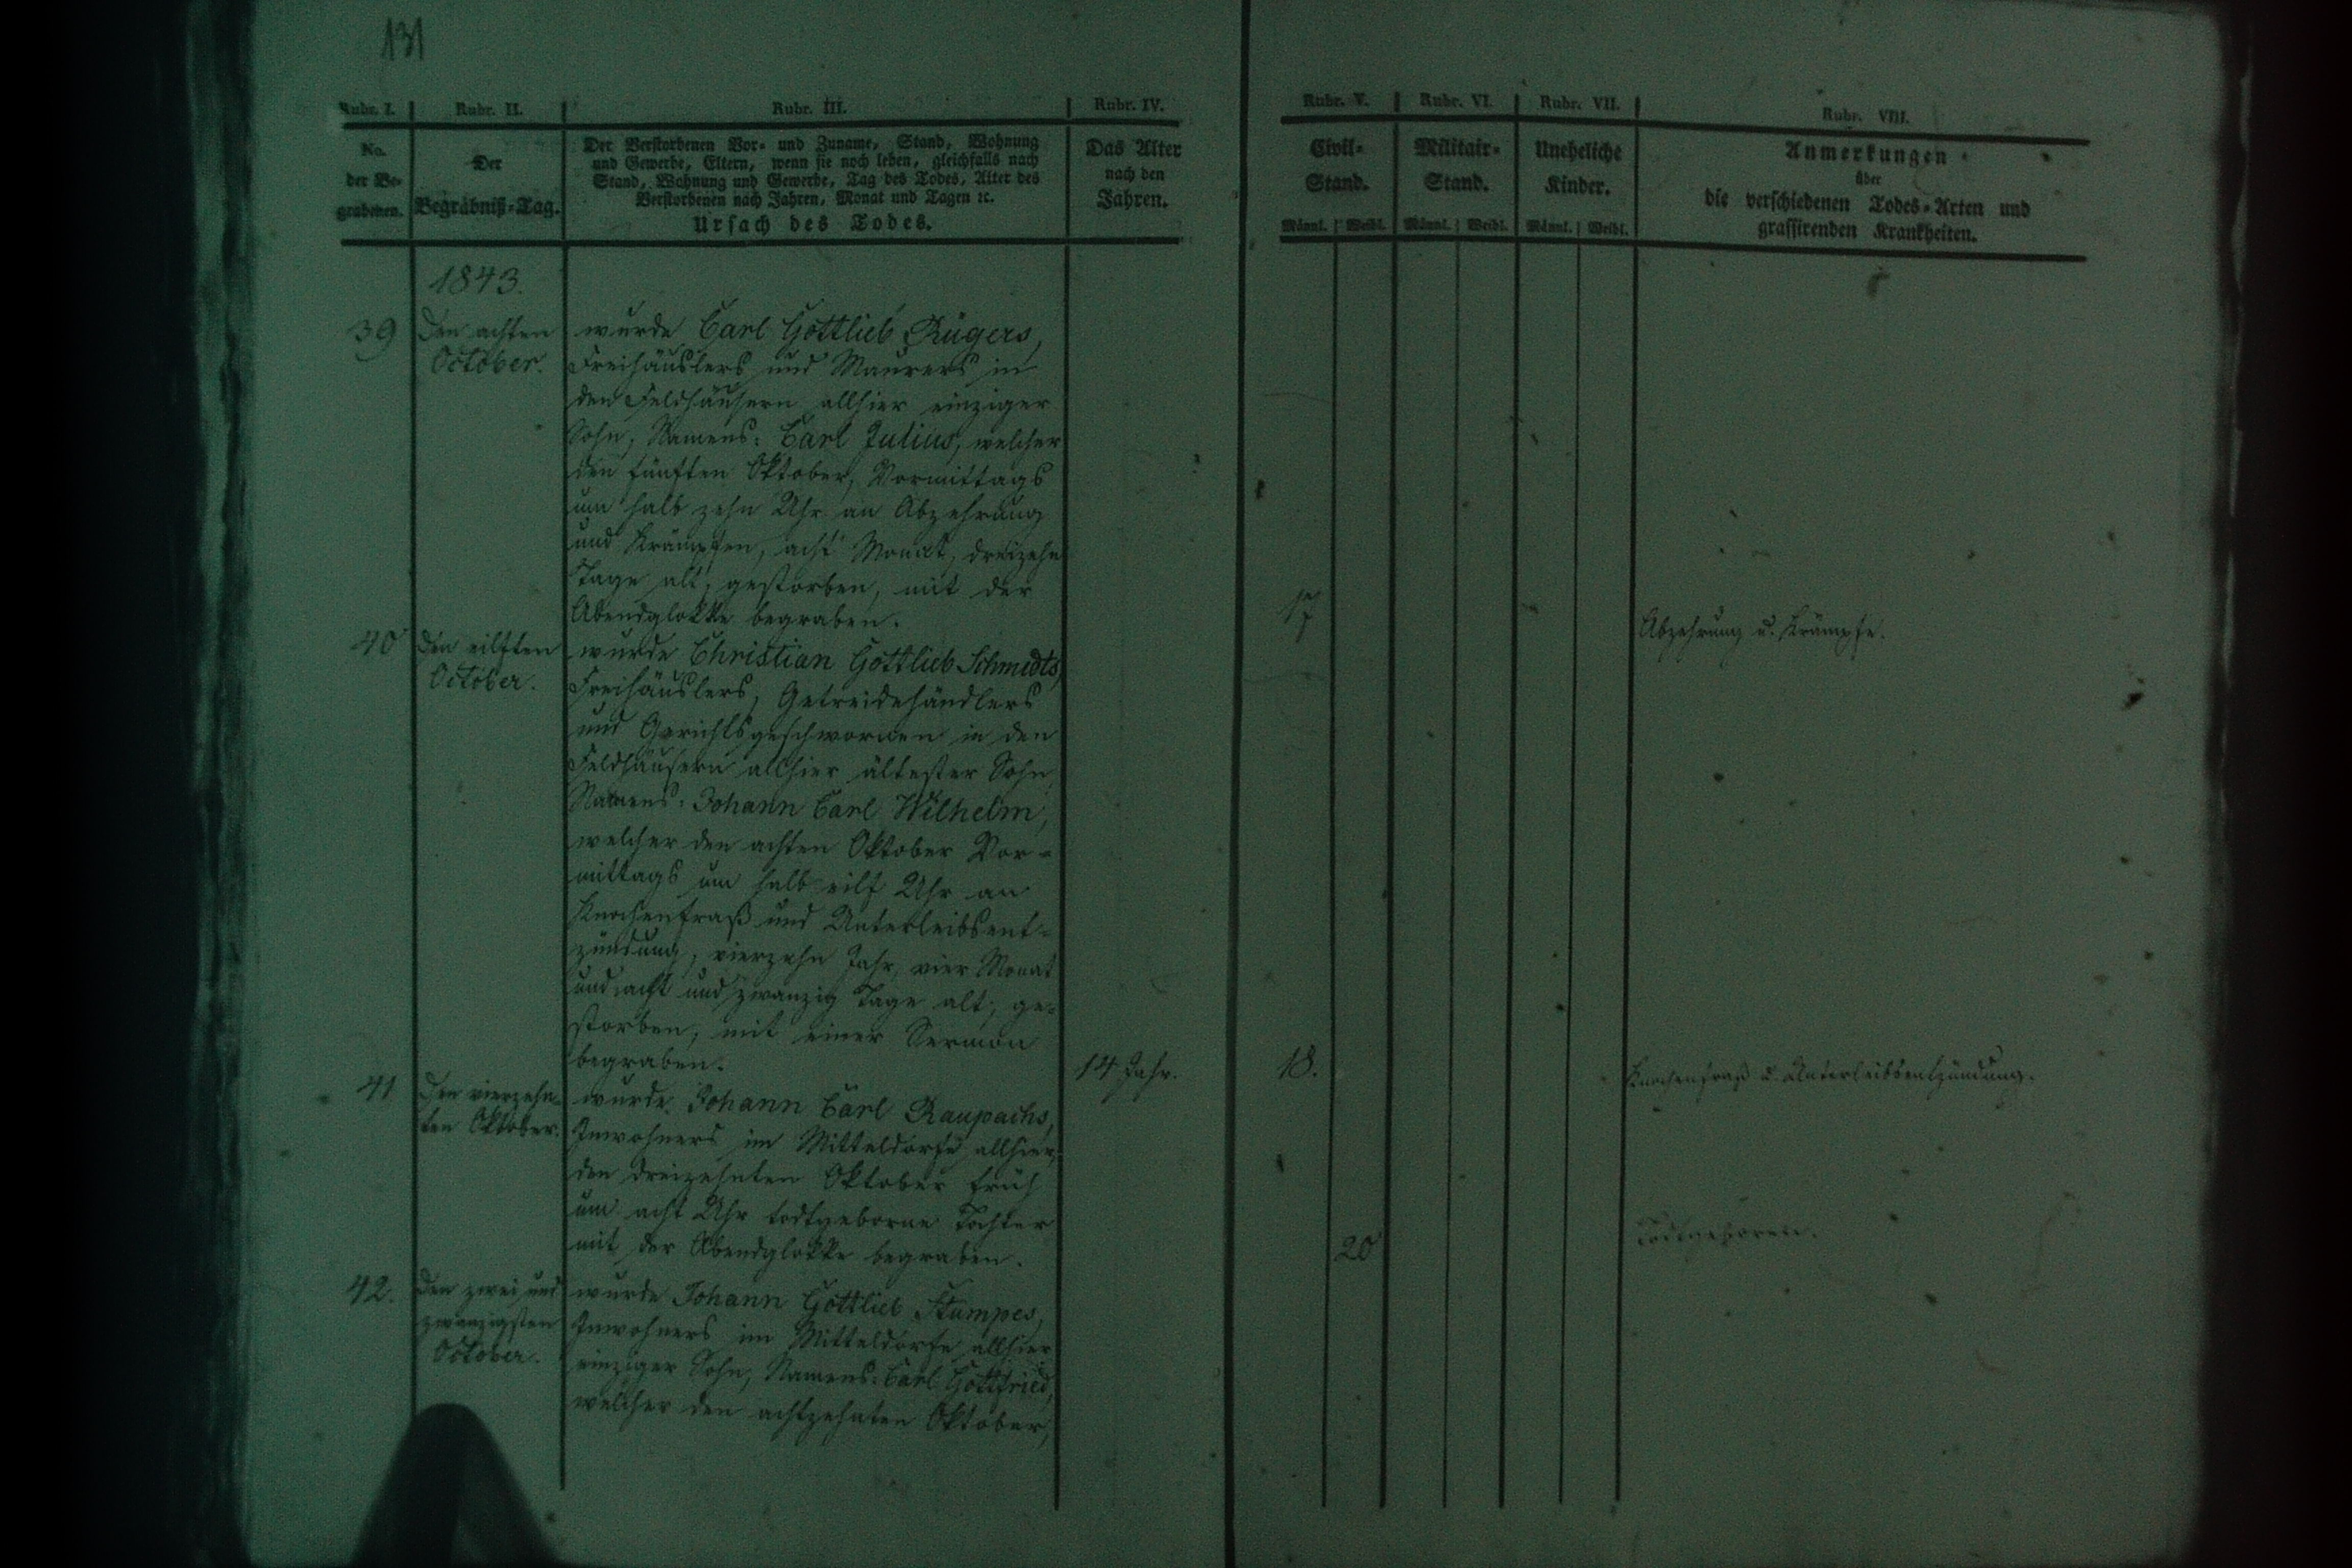 131
Rubr. I. Rubr. II. Rubr. III. Rubr. IV. Rubr. V. Rubr. VI. Rubr. VII. Rubr. VIII.
No.
der Be-
grabenen.
Der
Begräbniß-Tag.
Der Verstorbenen Vor- und Zuname, Stand, Wohnung
und Gewerbe, Eltern, wenn sie noch leben, gleichfalls nach
Stand, Wohnung und Gewerbe, Tag des Todes, Alter des
Verstorbenen nach Jahren, Monat und Tagen ꝛc.
Ursach des Todes.
Das Alter
nach den
Jahren.
Civil-
Stand.
Männl. Weibl.
Militair-
Stand.
Männl. Weibl.
Uneheliche
Kinder.
Männl. Weibl.
Anmerkungen
über
die verschiedenen Todes-Arten und
grassirenden Krankheiten.
1843.
39 Den achten
October.
wurde Carl Gottlieb Rügers,
Freihäuslers und Maurers in
den Feldhäusern allhier einziger
Sohn, Namens: Carl Julius, welcher
den fünften Oktober, Vormittags
um halb zehn Uhr an Abzehrung
und Krämpfen, acht Monat, dreizehn
Tage alt, gestorben, mit der
Abendglokke begraben.
17
Abzehrung u. Krämpfe.
40 Den eilften
October.
wurde Christian Gottlieb Schmidts,
Freihäuslers, Getreidehändlers
und Gerichtsgeschwornen in den
Feldhäusern allhier ältester Sohn
Namens: Johann Carl Wilhelm,
welcher den achten Oktober Vor-
mittags um halb eilf Uhr an
Knochenfraß und Unterleibsent-
zündung, vierzehn Jahr, vier Monat
und acht und zwanzig Tage alt, ge-
storben, mit einer Sermon
begraben.
14 Jahr.
18.
Knochenfraß u. Unterleibsentzündung.
41 Den vierzehn-
ten Oktober.
wurde Johann Carl Raupachs,
Inwohners im Mitteldorfe allhier,
den dreizehnten Oktober früh
um acht Uhr todtgeborne Tochter
mit der Abendglokke begraben.
20
Todtgeboren.
42. Den zwei und
zwanzigsten
October.
wurde Johann Gottlieb Stumpes,
Inwohners im Mitteldorfe allhier
einziger Sohn, Namens: Carl Gottfried,
welcher den achtzehnten Oktober,